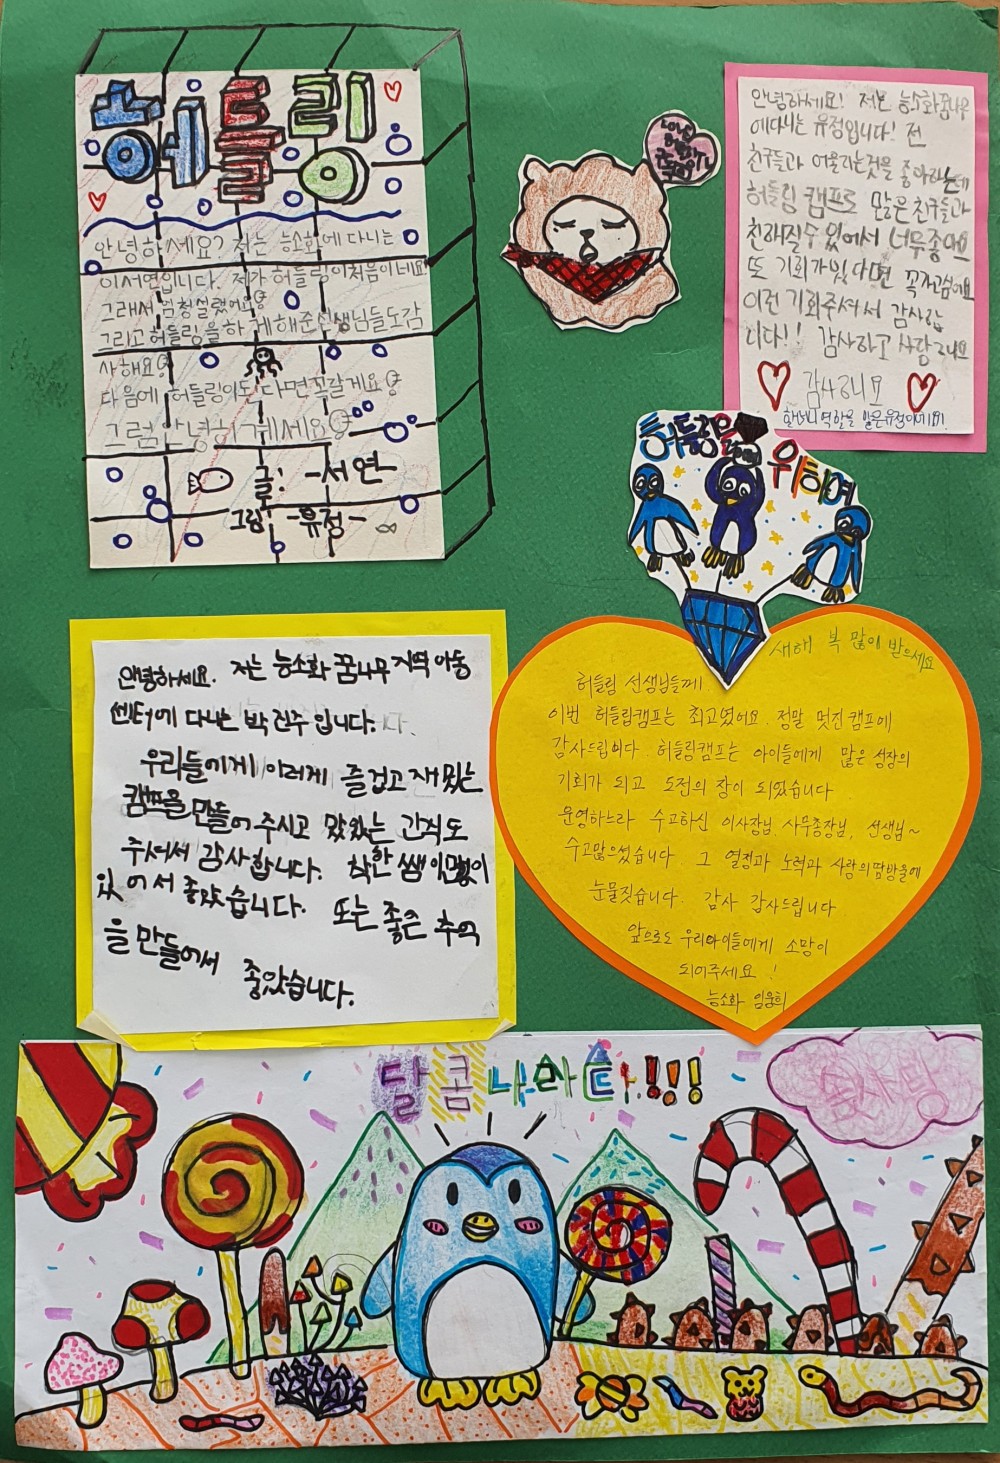 허들링
안녕하세요? 저는 능소화에 다니는
이서연입니다. 제가 허들링이 처음이네요
그래서 엄청설렜어요
그리고 허들링을 하게해준선생님들도감
사해요
다음에 허들링이또 다면꼭갈게요
그럼 안녕히계세요
글: -서연
그림 -유정-
안녕하세요! 저는 능소화꿈나무
에다니는 유정입니다! 전
친구들과 어울리는것을 좋아하는데
허들링 캠프로 많은 친구들과
친해질수 있어서 너무좋아요
또 기회가있다면 꼭가고싶어요
이런 기회주셔서 감사합
니다!! 감사하고 사랑해요
감사합니다
허들링을
위하여
안녕하세요. 저는 능소화 꿈나무 지역 아동
센터에 다니는 박진수입니다.
우리들에게 이러게 즐겁고 재밌는
캠프을 만들어 주시고 맜있는 간식도
주셔서 감사합니다. 착한 쌤이많이
있어서 좋았습니다. 또는 좋은 추억
을 만들어서 좋았습니다.
새해 복 많이 받으세요
허들링 선생님들께
이번 허들림캠프는 최고였어요. 정말 멋진캠프에
감사드립니다 허들림캠프는 아이들에게 많은 성장의
기회가 되고 도전의 장이 되었습니다
운영하느라 수고하신 이사장님, 사무총장님, 선생님~
수고많으셨습니다 그 열정과 노력과 사랑의땀방울에
눈물짓습니다. 감사 감사드립니다
앞으로도 우리아이들에게 소망이
되어주세요!
능소화 임웅희
달콤나라다!!!